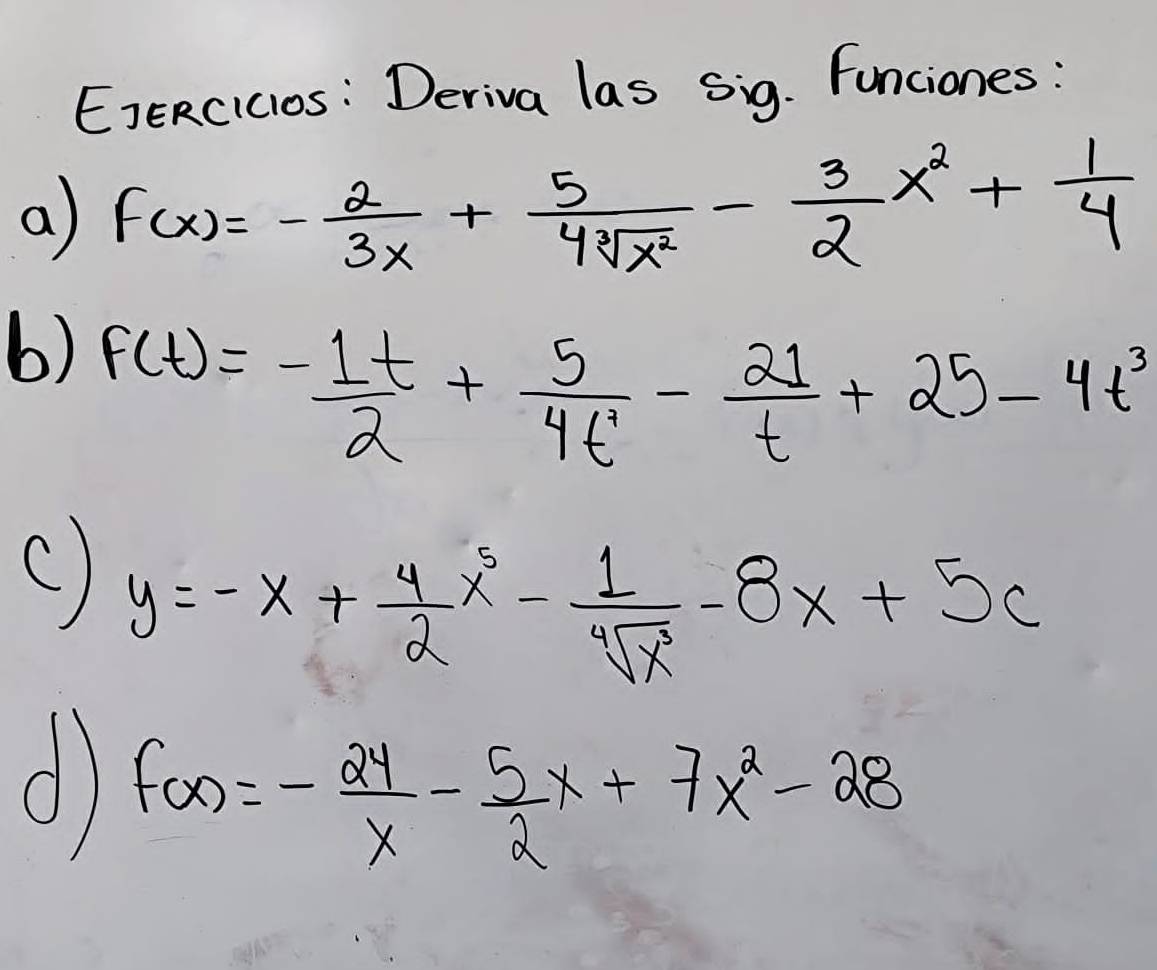 EJERCICIOS: Deriva las sig. Funciones:
a) f(x) = - 2/(3x) + 5/(4∛(x²)) - 3/2 x² + 1/4
b) f(t) = - 1t/2 + 5/(4t⁷) - 21/t + 25 - 4t³
c) y = - x + 4/2 x⁵ - 1/∜(x³) - 8x + 5c
d) f(x) = - 24/x - 5/2 x + 7x² - 28